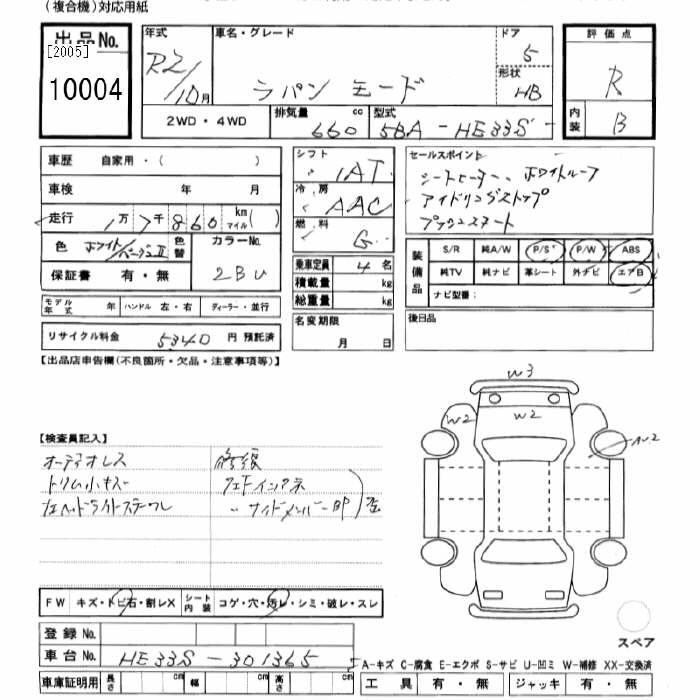 (複合機)対応用紙
出品No.
[2005]
10004
年式
R2/10月
車名・グレード
ラパン モード
ドア
5
形状
HB
評価点
R
内装
B
2WD・4WD
排気量 cc
660
型式
5BA-HE33S-
車歴 自家用・( )
車検 年 月
走行 1万7千860 km マイル( )
色 ホワイト/ベージュII
色替
カラーNo.
2BU
保証書 有・無
モデル年式 年 ハンドル 左・右 ディーラー・並行
リサイクル料金 5340 円 預託済
シフト
IAT
冷房
AAC
燃料
G
乗車定員 4 名
積載量 kg
総重量 kg
名変期限
月 日
セールスポイント
シートヒーター、ホワイトルーフ
アイドリングストップ
プッシュスタート
装備品
S/R 純A/W P/S P/W ABS
純TV 純ナビ 革シート 外ナビ エアB
ナビ型番:
後日品
【出品店申告欄(不良箇所・欠品・注意事項等)】
【検査員記入】
オーディオレス
トリム小キズ
左ヘッドライトステーワレ
修復
左
W3
W2
W2
W2
FW キズ・トビ石・割レX
シート内装 コゲ・穴・汚レ・シミ・破レ・スレ
登録No.
車台No. HE33S-301365
車庫証明用 長さ cm 幅 cm 高さ cm
スペア
A-キズ C-腐食 E-エクボ S-サビ U-凹ミ W-補修 XX-交換済
工具 有・無 ジャッキ 有・無